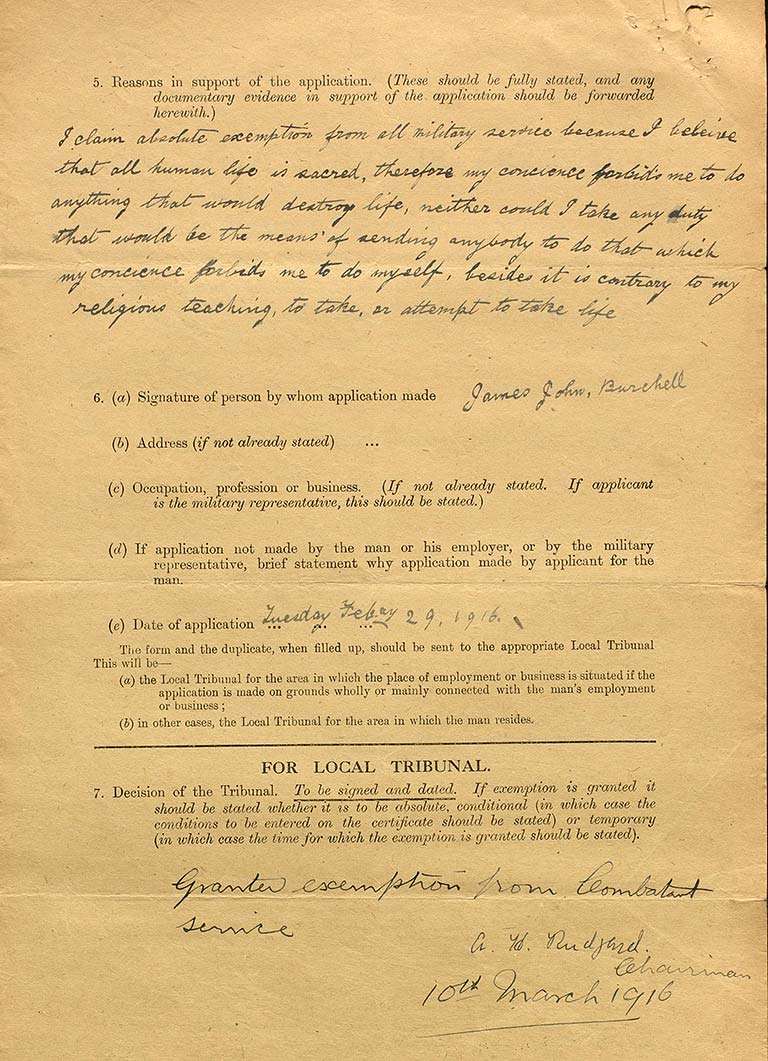 5. Reasons in support of the application. (These should be fully stated, and any
documentary evidence in support of the application should be forwarded
herewith.)
I claim absolute exemption from all military service because I beleive
that all human life is sacred, therefore my concience forbids me to do
anything that would destroy life, neither could I take any duty
that would be the means of sending anybody to do that which
my concience forbids me to do myself, besides it is contrary to my
religious teaching, to take, or attempt to take life
6. (a) Signature of person by whom application made James John, Burchell
(b) Address (if not already stated) ...
(c) Occupation, profession or business. (If not already stated. If applicant
is the military representative, this should be stated.)
(d) If application not made by the man or his employer, or by the military
representative, brief statement why application made by applicant for the
man.
(e) Date of application Tuesday Febuary 29, 1916.
The form and the duplicate, when filled up, should be sent to the appropriate Local Tribunal
This will be—
(a) the Local Tribunal for the area in which the place of employment or business is situated if the
application is made on grounds wholly or mainly connected with the man's employment
or business;
(b) in other cases, the Local Tribunal for the area in which the man resides.
FOR LOCAL TRIBUNAL.
7. Decision of the Tribunal. To be signed and dated. If exemption is granted it
should be stated whether it is to be absolute, conditional (in which case the
conditions to be entered on the certificate should be stated) or temporary
(in which case the time for which the exemption is granted should be stated).
Granted exemption from Combatant
service
A. H. Rudgard.
Chairman
10th March 1916